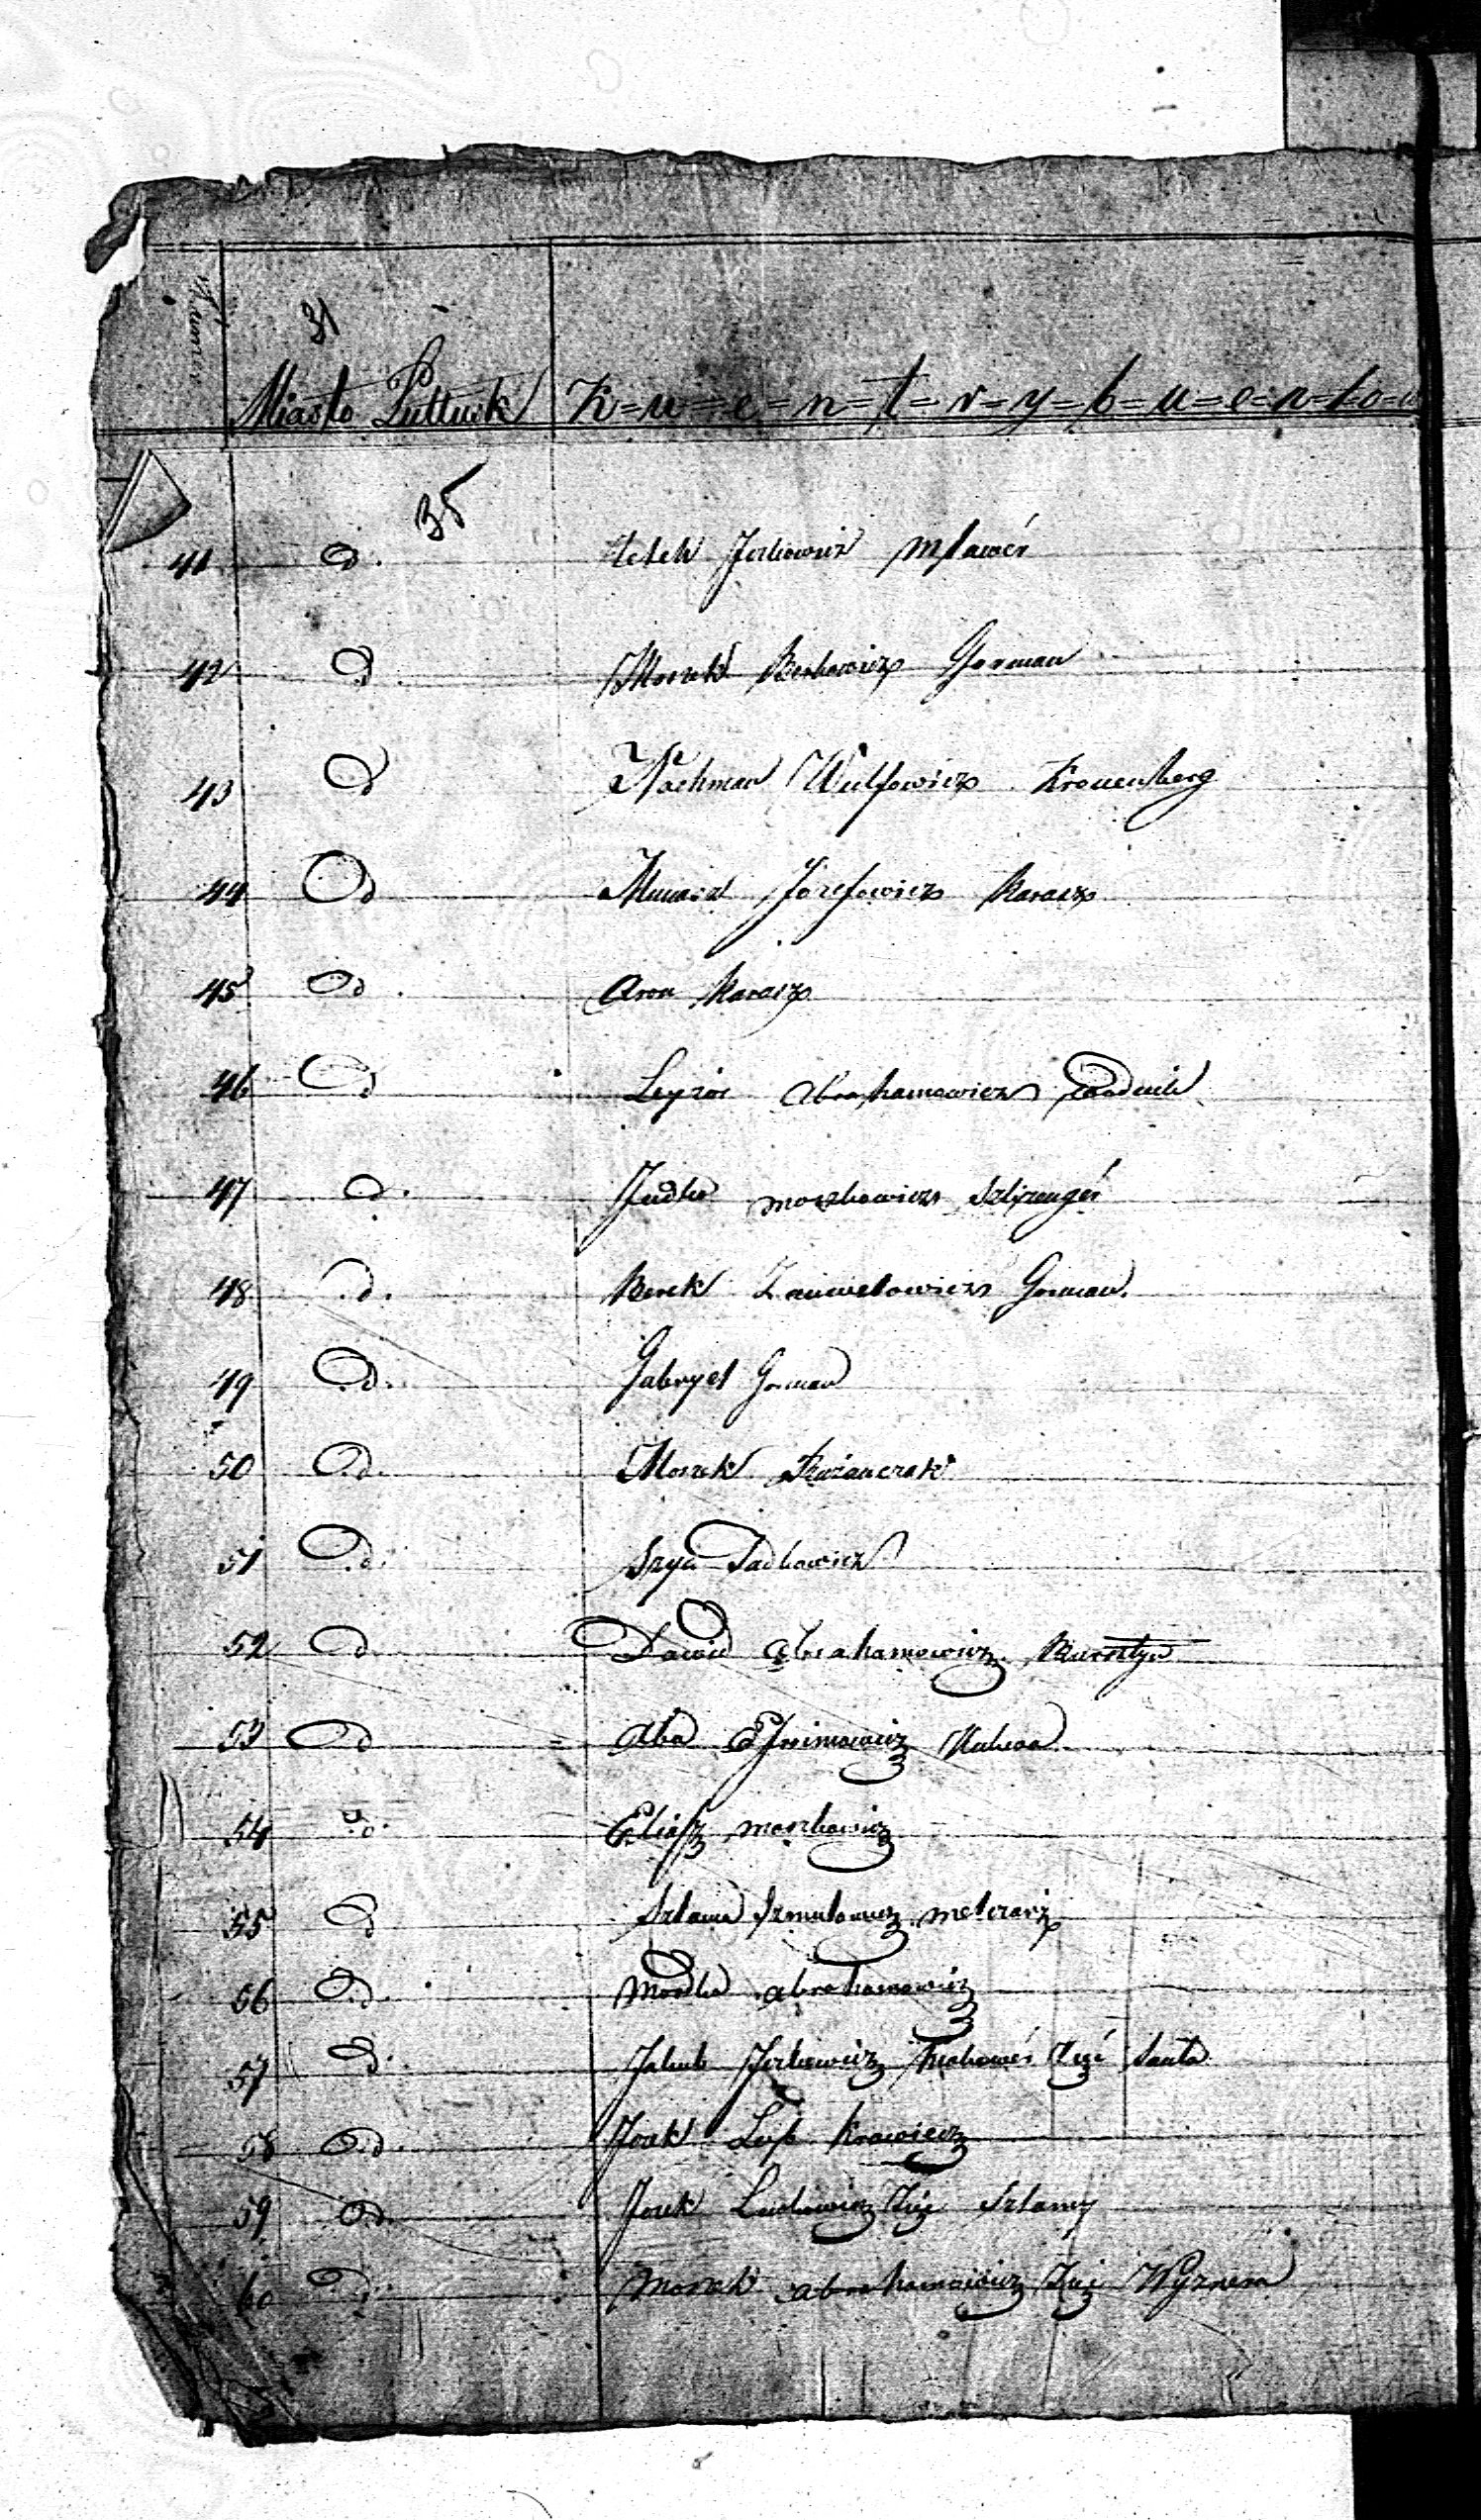 Numer
31
Miasto Pułtusk K=w=e=n=t=r=y=b=u=e=n=t=o=w
35
41 d. Jcrkowicz Mławer
42 d. Moszek Berkowicz Gorman
43 d Nachman Wulfowicz Kronenberg
44 d Józefowicz Karasz
45 d. Aron Karasz
46 d Leyzor Abrahamowicz
47 d. Judka Moszkowicz Szlyzenger
48 d. Berek Zaiwelowicz Gorman.
49 d. Gabryel Gorman
50 d. Moszek Różanczak
51 d. Szya Jadkowicz
52 d. Dawid Abrahamowicz Bursztyn
53 d Aba Efroimowicz
54 d. Eliasz Moszkowicz
55 d Szlama Szmulowicz Melczarz
56 d. Mordka Abrahamowicz
57 d. Jakub Jckowicz Zięć Saula
58 d. Josk Krawiecz
59 d. Josek Zięć Szlamy
60 d. Moszek Abrahamowicz Zięć Wyznera